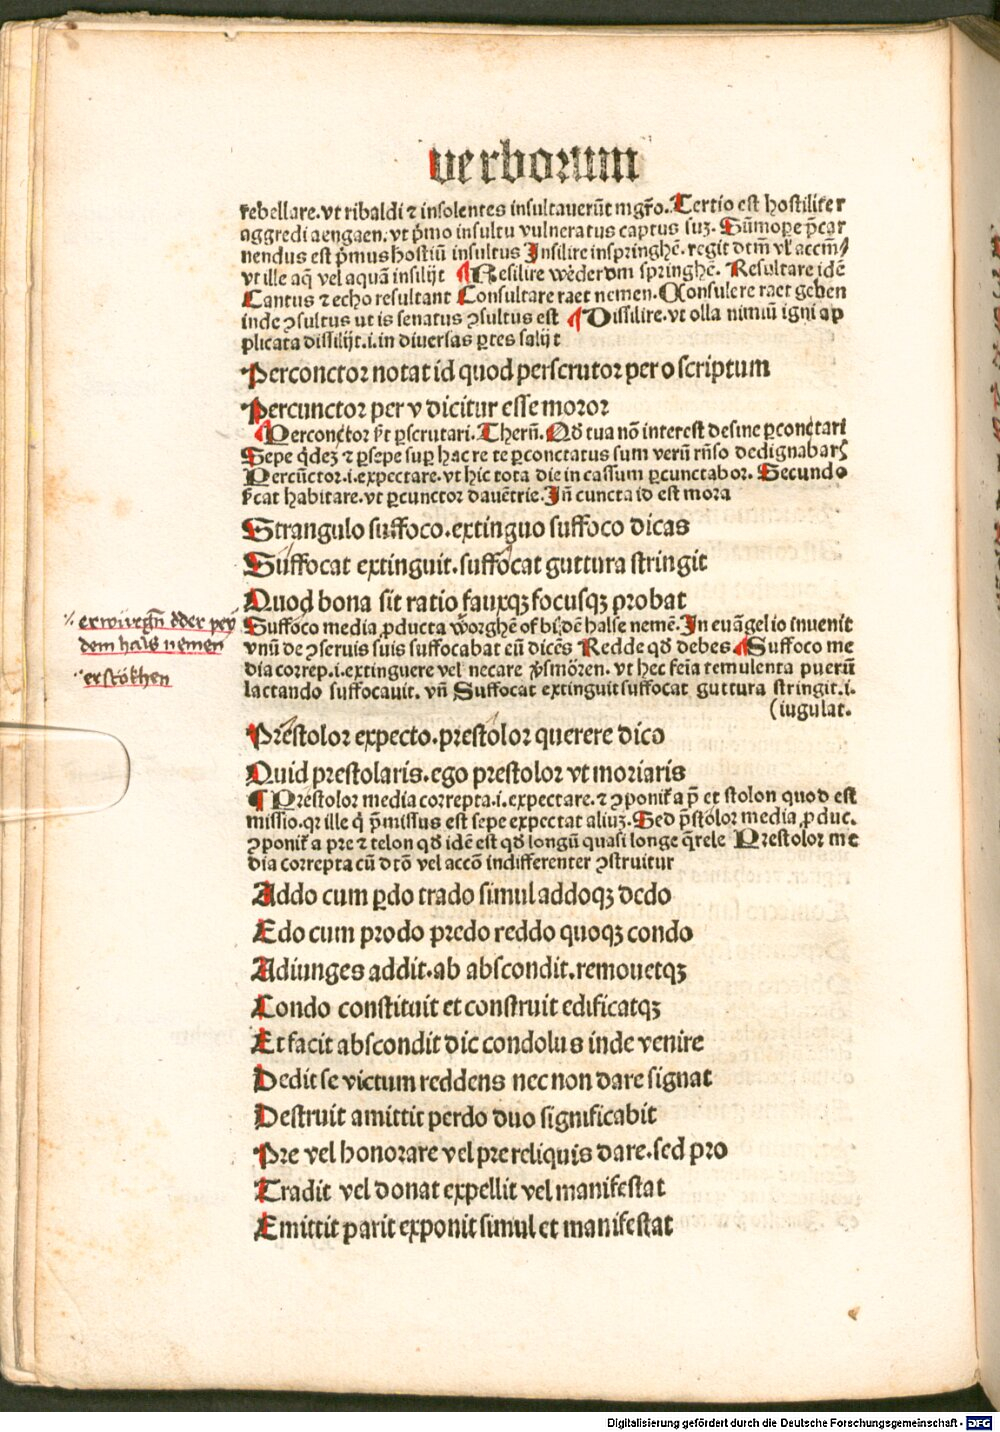 verborum
rebellare.vt ribaldi ⁊ insolentes insultauerūt mgr̄o..Tertio est hostiliter
aggredi aengaen.vt p̄mo insultu vulneratus captus suꝫ. Sūmopere p̄car
nendus est p̄mus hostiū insultus Insilire inspringhē.regit dtm̄ vl' accm̄/
vt ille aq̄ vel aquā insilijt ¶ Resilire wēderom springhē. Resultare idē
Cantus ⁊ echo resultant Consultare raet nemen.Consulere raet geben
inde ꝯsultus ut is senatus ꝯsultus est ¶ Dissilire.vt olla nimiū igni ap
plicata dissilijt.i.in diuersas ꝑtes salijt
Perconctor notat id quod perscrutor per o scriptum
Percunctor per v dicitur esse moror
¶ Perconctor s̄t ꝑscrutari.Therū.Qd̄ tua nō interest desine ꝑconctari
Sepe q̇deꝫ ⁊ ꝑsepe suꝑ hac re te ꝑconctatus sum verū rn̄so dedignabarꝭ
Percūctor.i.expectare.vt hic tota die in cassum ꝑcunctabor. Secundo
s̄cat habitare.vt ꝑcunctor dauētrie.Iñ cuncta id est mora
Strangulo suffoco.extinguo suffoco dicas
Suffocat extinguit.suffocat guttura stringit
Quod bona sit ratio fauxqꝫ focusqꝫ probat
·/. erwürgn̄ oder pey
dem hals nemen
·· erstökhen
Suffoco media ꝓducta wörghē of bi dē halse nemē.In euāgelio inuenit
vnū de ꝯseruis suis suffocabat eū dicēs Redde qd̄ debes ¶ Suffoco me
dia correp.i.extinguere vel necare v̓smören. vt hec feīa temulenta puerū
lactando suffocauit. vn̄ Suffocat extinguit suffocat guttura stringit.i.
(iugulat.
Prestolor expecto.prestolor querere dico
Quid prestolaris.ego prestolor vt moriaris
¶ Prestolor media correpta.i.expectare.⁊ ꝯponit̃ a p̄ et stolon quod est
missio.qr ille q̇ p̄missus est sepe expectat aliuꝫ.Sed p̄stōlor media ꝓduc.
ꝯponit̃ a pre ⁊ telon qd̄ idē est qd̄ longū quasi longe q̄rele Prestolor me
dia correpta cū dtō vel accō indifferenter ꝯstruitur
Addo cum ꝑdo trado simul addoqꝫ dedo
Edo cum prodo predo reddo quoqꝫ condo
Adiunges addit.ab abscondit.remouetqꝫ
Condo constituit et construit edificatqꝫ
Et facit abscondit dic condolus inde venire
Dedit se victum reddens nec non dare signat
Destruit amittit perdo duo significabit
Pre vel honorare vel pre reliquis dare.sed pro
Tradit vel donat expellit vel manifestat
Emittit parit exponit simul et manifestat
Digitalisierung gefördert durch die Deutsche Forschungsgemeinschaft - DFG